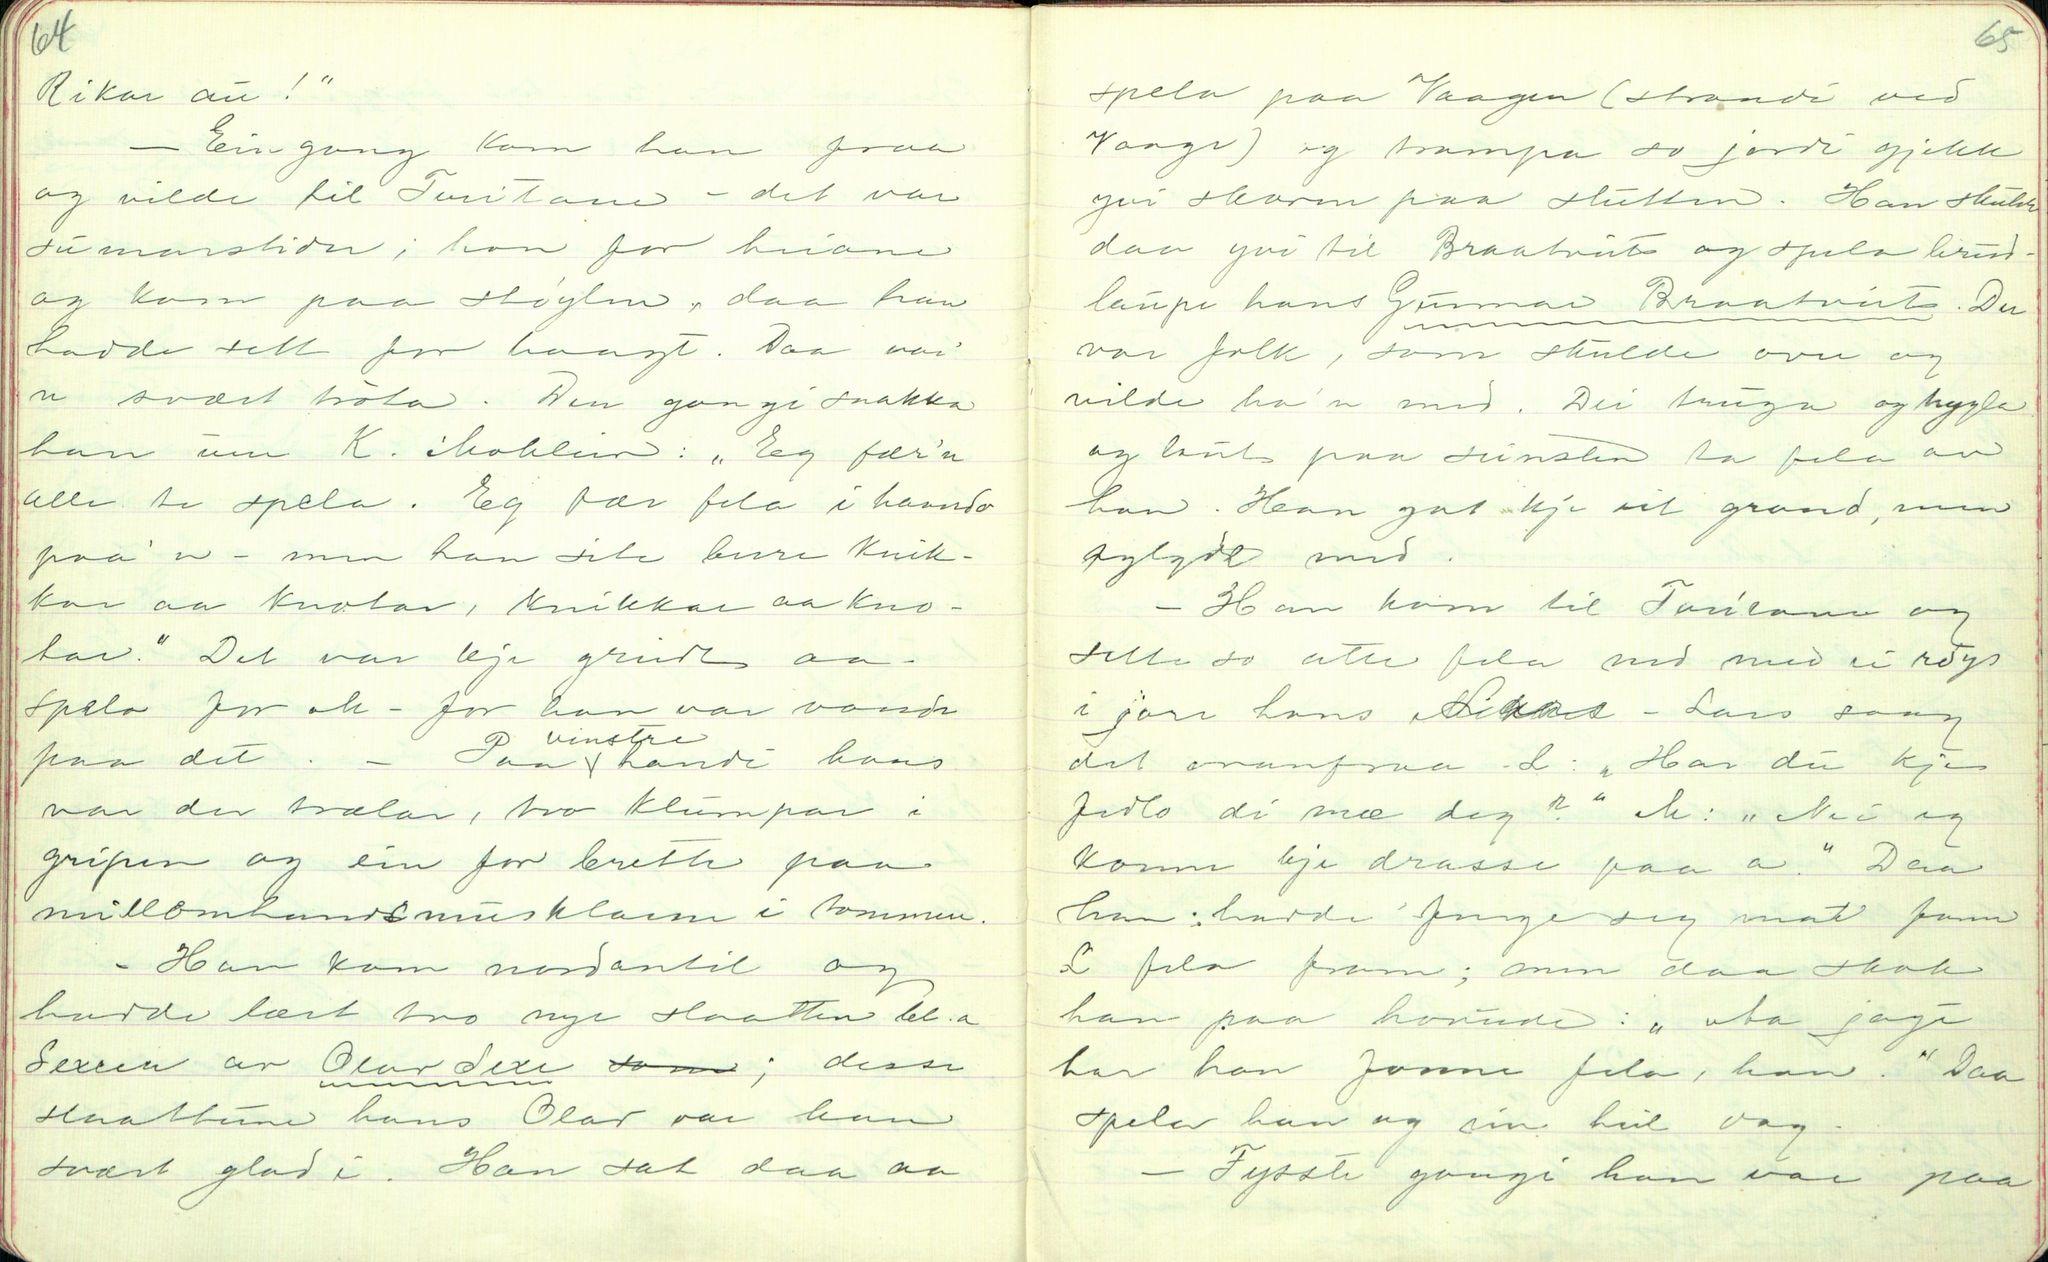 64
Rikar au!"
— Ein gong kom han fraa
og vilde til Turitane – det var
sumarstider; han for heiane
og kom paa støylen, daa han
hadde sett for haagt. Daa var
'n svært trøta. Den gongi snakka
han um K. : „Eg fær'n
alle te spela. Eg fær fela i haando
paa'n – men han site bere knik-
kar aa knotar, knikkar aa kno-
tar." Det var kje greidt aa
spela for M – for han var vand
paa det. – Paa vinstre handi hans
var der trælar, tvo klumpar i
gripen og ein for brette paa
millomhandsmusklaen i tommen.
– Han kom nordantil og
hadde lært tvo nye slaatter bl.a
Sexen av Olav Sexe som; desse
slaattene hans Olav var han
svært glad i. Han sat daa aa
65
spela paa Vaagen (strandi ved
Vaage) og trampa so jordi gjekk
yvi skorne paa slutten. Han skulde
daa yvi til Braatveit og spela brud-
laupe hans Gunnar Braatveit. Der
var folk, som skulde over og
vilde ha'n med. Dei truga og hygla
og laut paa sinsten ta fela av
han. Han gat kje eit grand, men
fylgde med.
– Han kom til Turitane og
sette so atte fela ned med ei røys
i jore hans – Lars saag
det ovanfraa. L: „Har du kje
fedlo di mæ deg?" M: „Nei eg
komm kje drasse paa a." Daa
han hadde fenge seg mat fann
L fela fram; men daa skok
han paa hovude: „ jagi
har han fonne fela, han." Daa
spela han og ein heil dag.
— Fysste gongi han var paa